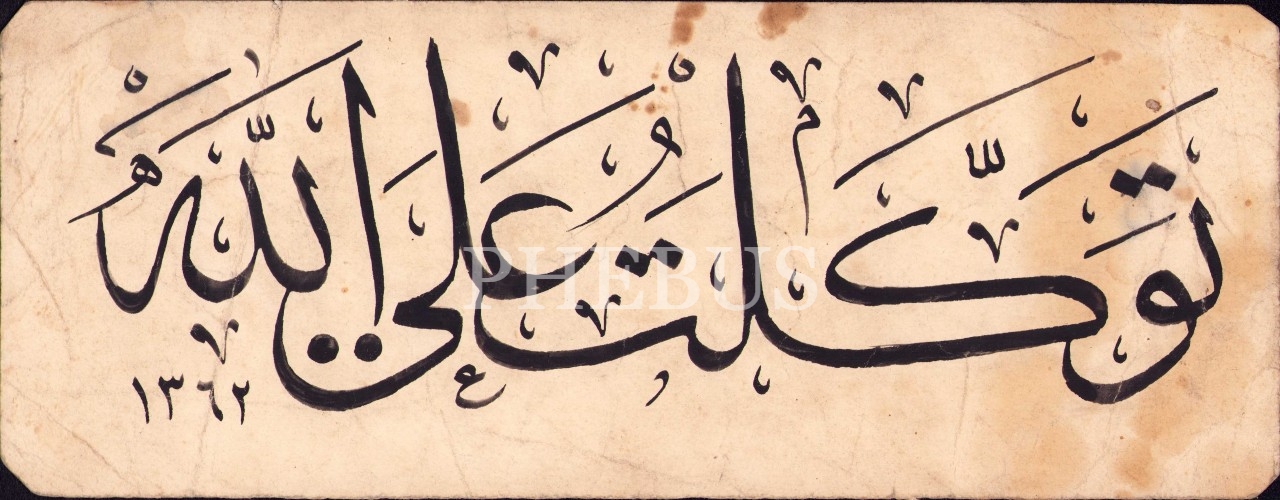 تَوَكَّلْتُ عَلَى اللّٰه
١٣٦٢
PHEBUS